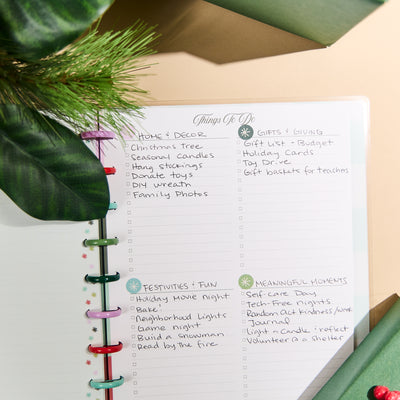 Things To Do
HOME & DECOR
Christmas Tree
Seasonal Candles
Hang stockings
Donate toys
DIY wreath
Family Photos
GIFTS & GIVING
Gift List - Budget
Holiday Cards
Toy Drive
Gift baskets for teachers
FESTIVITIES & FUN
Holiday Movie night
Bake!
Neighborhood Lights
Game night
Build a snowman
Read by the fire
MEANINGFUL MOMENTS
Self-care Day
Tech-Free nights
Random Act kindness
Journal
Light a Candle & reflect
Volunteer @ a shelter